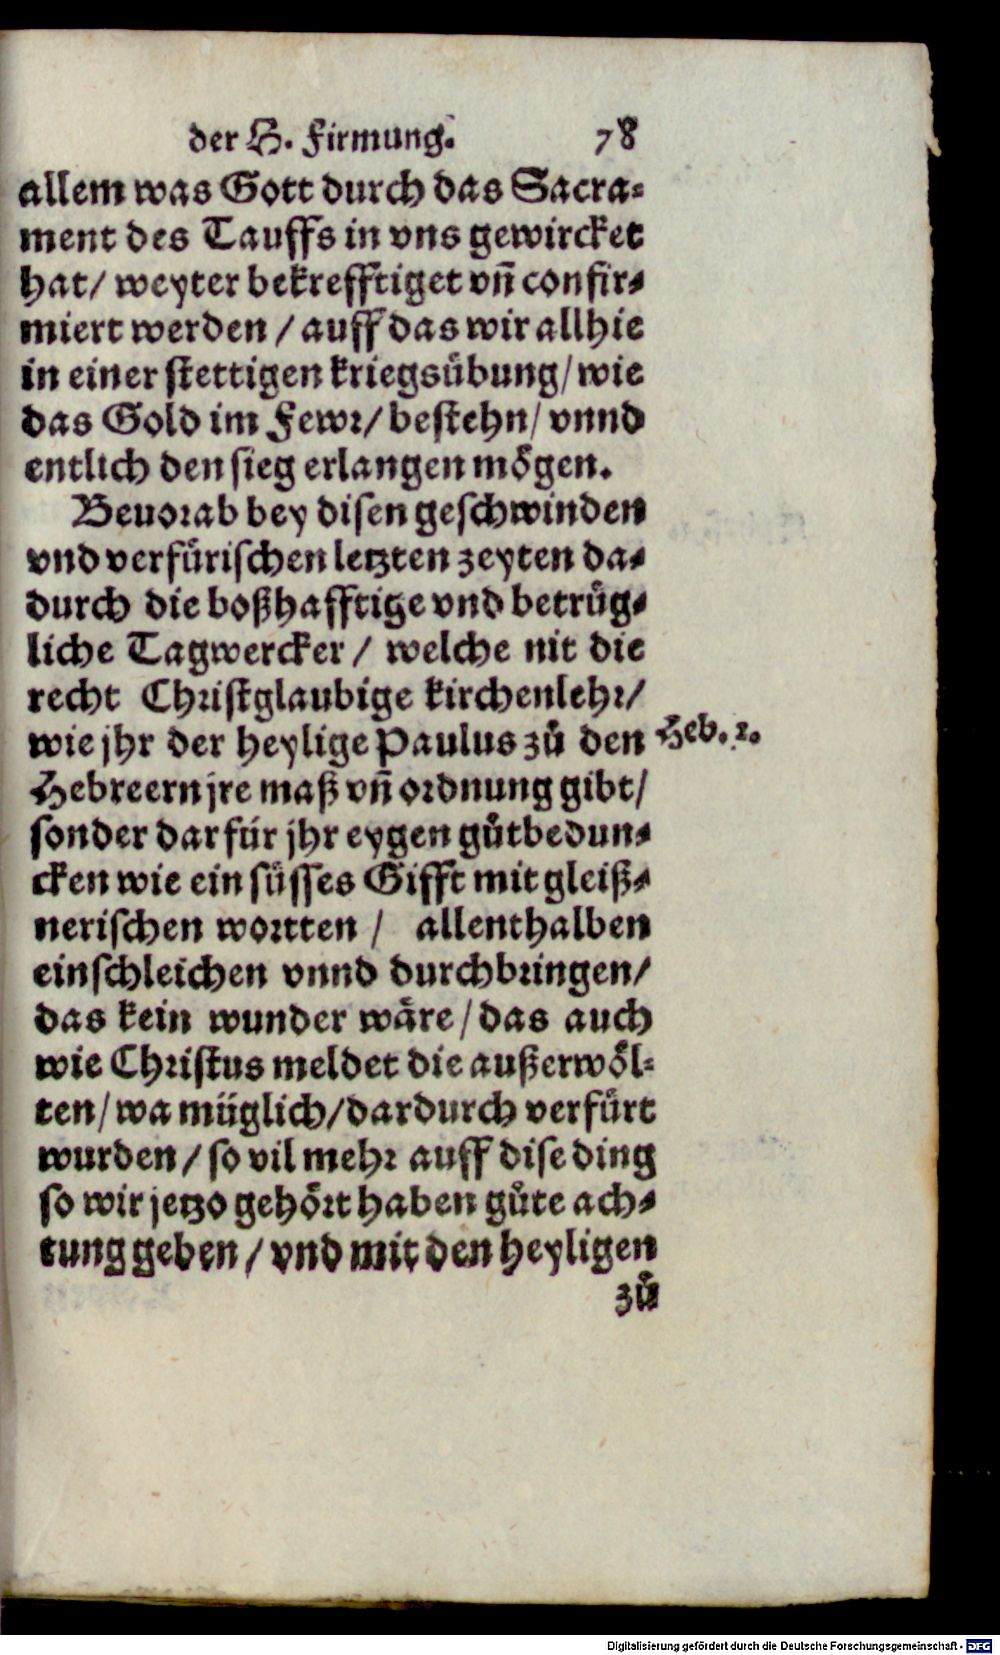 der H. Firmung. 78
allem was Gott durch das Sacra-
ment des Tauffs in vns gewircket
hat/ weyter bekrefftiget vn̄ confir-
miert werden / auff das wir allhie
in einer stettigen kriegsübung/ wie
das Gold im Fewr/ bestehn/ vnnd
entlich den sieg erlangen mögen.
Beuorab bey disen geschwinden
vnd verfürischen letzten zeyten da-
durch die boßhafftige vnd betrüg-
liche Tagwercker / welche nit die
recht Christglaubige kirchenlehr/
wie jhr der heylige Paulus zů den Heb. 1.
Hebreern jre maß vn̄ ordnung gibt/
sonder darfür jhr eygen gůtbedun-
cken wie ein süsses Gifft mit gleiß-
nerischen wortten / allenthalben
einschleichen vnnd durchbringen/
das kein wunder wäre / das auch
wie Christus meldet die außerwöl-
ten/ wa müglich/ dardurch verfürt
wurden / so vil mehr auff dise ding
so wir jetzo gehört haben gůte ach-
tung geben / vnd mit den heyligen
zů
Digitalisierung gefördert durch die Deutsche Forschungsgemeinschaft - DFG